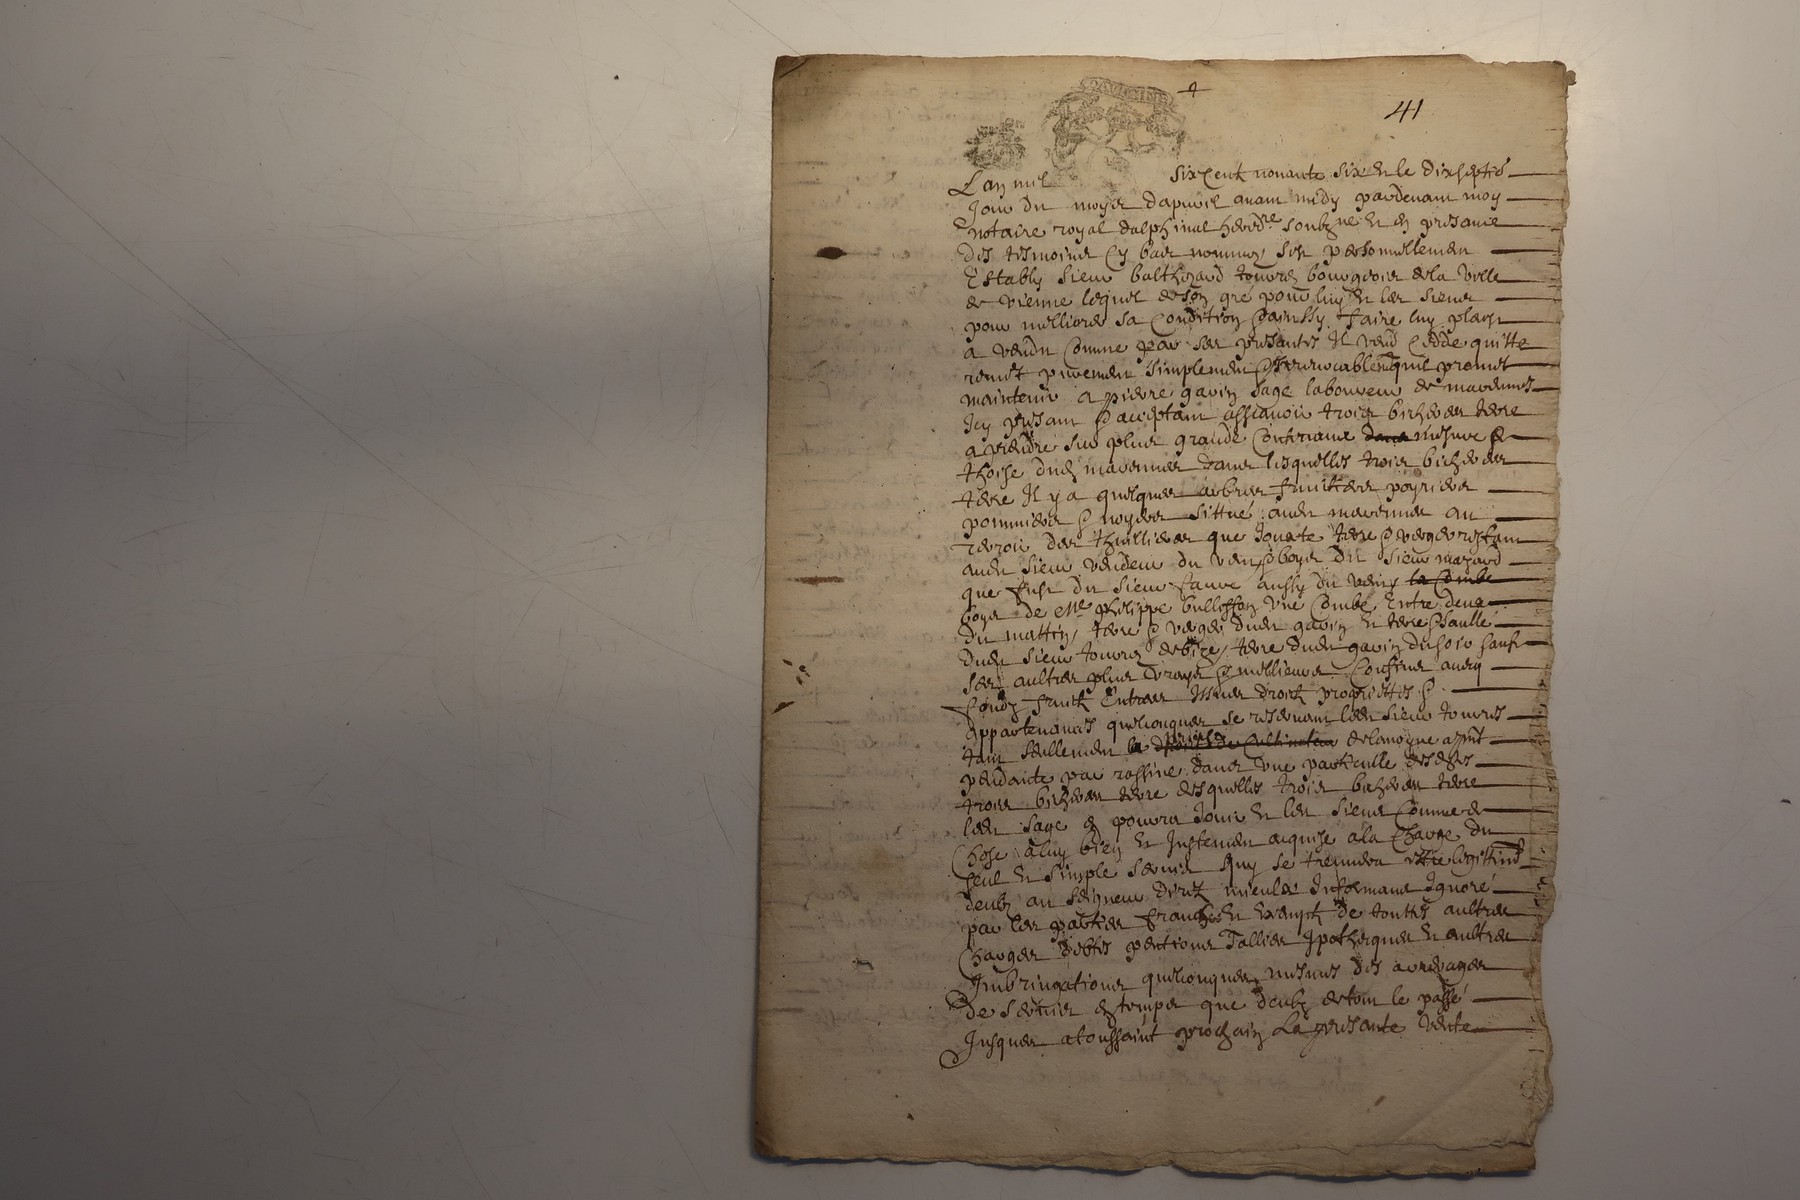 DAVPHINE
41
L'an mil six cent nonante six & le dixseptie
Jour du moys d'apuril auant midy pardeuant moy
notaire royal dalphinal heredre soubzne & en presance
des tesmoins cy bas nommes, s'est personnellemen
Estably sieur balthezard tourres bourgeois de la ville
de vienne lequel de son gre pour luy & les siens
pour melliorer sa condition & ainssy faire luy plaist
a vendu comme par ses presantes Il vend cedde quitte
remet purement simplement & Irreuocablemt quil promet
maintenir a pierre gauin sage laboureur de marennes
Icy presant & acceptant assauoir trois bicherees terre
a prendre sur plus grande contenance dans mesure &
thoise dud marennes dans lesquelles trois bicherees
terre Il y a quelques arbres fruitiers poyriers
pommiers & noyers sittué aud marennes au
terroir des thuillieres que Jouxte terre & verger restant
aud sieur vendeur du vent & boys du sieur
que fust du sieur faure aussy du vent la Combe
boys de Me philippe une Combe Entre deux
du mattin, terre & verger dud gauin & terre & saulle
dud sieur tourres de bize, terre dud gauin du soir sauf
ses aultres plus vrays & meilleurs confins auecq
fondz fruitz Entrees Issues droitz propriettés &
appartenances quelconques se reseruant led sieur tourres
tant seullement la
pendante par rassine dans une particulle desdites
trois bicherees terre desquelles trois bicherees terre
led sage en pourra Jouir & les siens comme de
Chose a luy bien & Justement aquise a la Charge du
seul & simple seruis quy se treuuera estre legittimt
deubz au seigneur direct Ignoré
par les parties franches & Exempt de touttes aultres
Charges debtes pentions Tallies Ipotheques & aultres
Imbrigations quelconques mesmes des arrerages
de seruis & temps que deubz de tout le passé
Jusques a toussaint prochain La presante vente